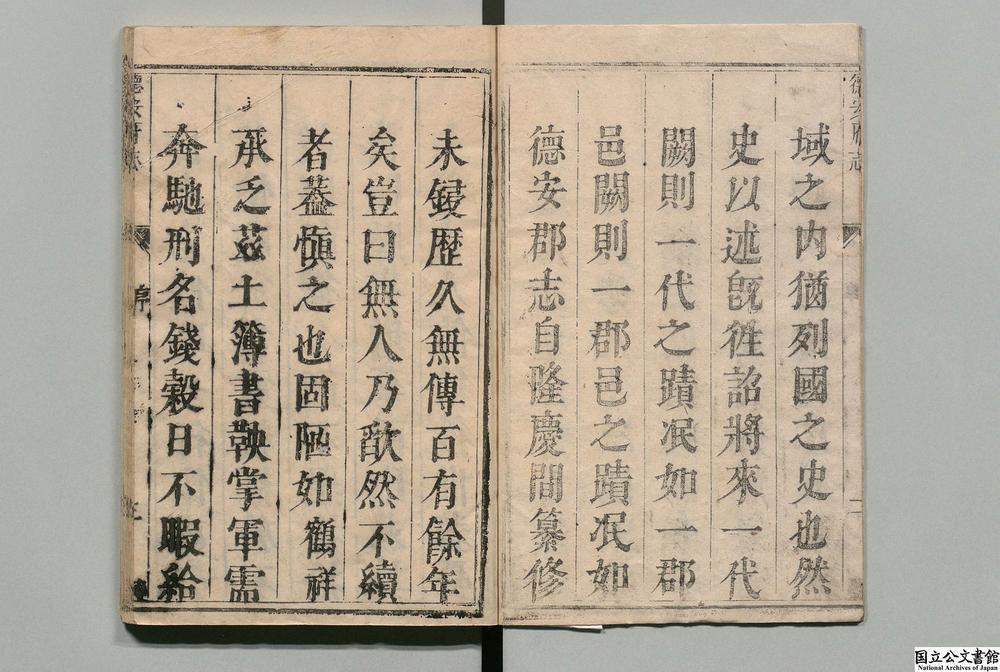 域之内猶列國之史也然
史以述旣徃詔將來一代
闕則一代之蹟冺如一郡
邑闕則一郡邑之蹟冺如
德安郡志自隆慶間纂修
未鋟歷久無傳百有餘年
矣豈曰無人乃歉然不續
者葢慎之也固陋如鶴祥
承乏茲土簿書鞅掌軍需
奔馳刑名錢穀日不暇給
德安府志
序
德安府志
国立公文書館
National Archives of Japan